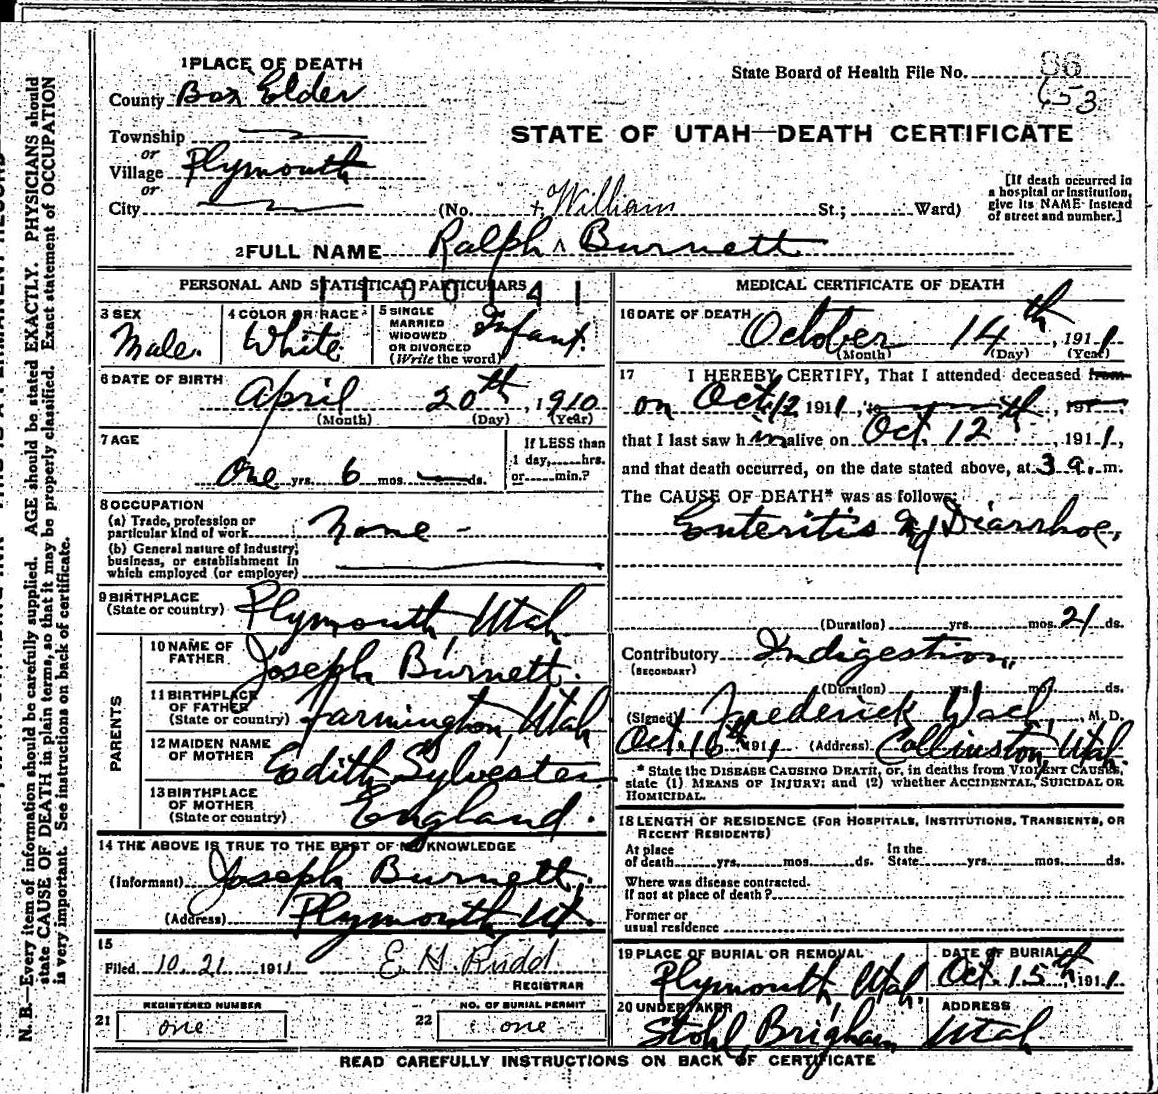 1 PLACE OF DEATH
County Box Elder
Township
or
Village Plymouth
or
City
State Board of Health File No. 86
653
STATE OF UTAH—DEATH CERTIFICATE
(No. St.; Ward)
[If death occurred in
a hospital or institution,
give its NAME instead
of street and number.]
+ William
2 FULL NAME Ralph ^ Burnett
PERSONAL AND STATISTICAL PARTICULARS
1100141
3 SEX
Male.
4 COLOR OR RACE
White
5 SINGLE
MARRIED
WIDOWED
OR DIVORCED
(Write the word)
Infant.
6 DATE OF BIRTH
April 20th, 1910
(Month) (Day) (Year)
7 AGE
One yrs. 6 mos. ds.
If LESS than
1 day, hrs.
or min.?
8 OCCUPATION
(a) Trade, profession or
particular kind of work None -
(b) General nature of industry,
business, or establishment in
which employed (or employer)
9 BIRTHPLACE
(State or country) Plymouth Utah
PARENTS
10 NAME OF
FATHER Joseph Burnett.
11 BIRTHPLACE
OF FATHER
(State or country) Farmington, Utah
12 MAIDEN NAME
OF MOTHER Edith Sylvester
13 BIRTHPLACE
OF MOTHER
(State or country) England.
14 THE ABOVE IS TRUE TO THE BEST OF MY KNOWLEDGE
(Informant) Joseph Burnett,
(Address) Plymouth, Ut.
15
Filed 10.21 1911 E H. Rudd
REGISTRAR
REGISTERED NUMBER
21 one
NO. OF BURIAL PERMIT
22 one
MEDICAL CERTIFICATE OF DEATH
16 DATE OF DEATH
October 14th, 1911
(Month) (Day) (Year)
17 I HEREBY CERTIFY, That I attended deceased from
on Oct. 12 1911, to th, 191
that I last saw him alive on Oct. 12th, 1911,
and that death occurred, on the date stated above, at 3 a. m.
The CAUSE OF DEATH* was as follows:
Enteritis Diarrhoe,
(Duration) yrs. mos. 21 ds.
Contributory Indigestion,
(SECONDARY)
(Duration) yrs. mos. ds.
(Signed) Frederick M. D.
Oct. 16th 1911 (Address) Collinston, Utah.
* State the DISEASE CAUSING DEATH, or, in deaths from VIOLENT CAUSES,
state (1) MEANS OF INJURY; and (2) whether ACCIDENTAL, SUICIDAL OR
HOMICIDAL.
18 LENGTH OF RESIDENCE (FOR HOSPITALS, INSTITUTIONS, TRANSIENTS, OR
RECENT RESIDENTS)
At place
of death yrs. mos. ds.
In the
State yrs. mos. ds.
Where was disease contracted.
If not at place of death?
Former or
usual residence
19 PLACE OF BURIAL OR REMOVAL
Plymouth, Utah.
DATE OF BURIAL
Oct. 15th 1911
20 UNDERTAKER
Stohl, Brigham
ADDRESS
Utah
READ CAREFULLY INSTRUCTIONS ON BACK OF CERTIFICATE
N. B.—Every item of information should be carefully supplied. AGE should be stated EXACTLY. PHYSICIANS should
state CAUSE OF DEATH in plain terms, so that it may be properly classified. Exact statement of OCCUPATION
is very important. See instructions on back of certificate.